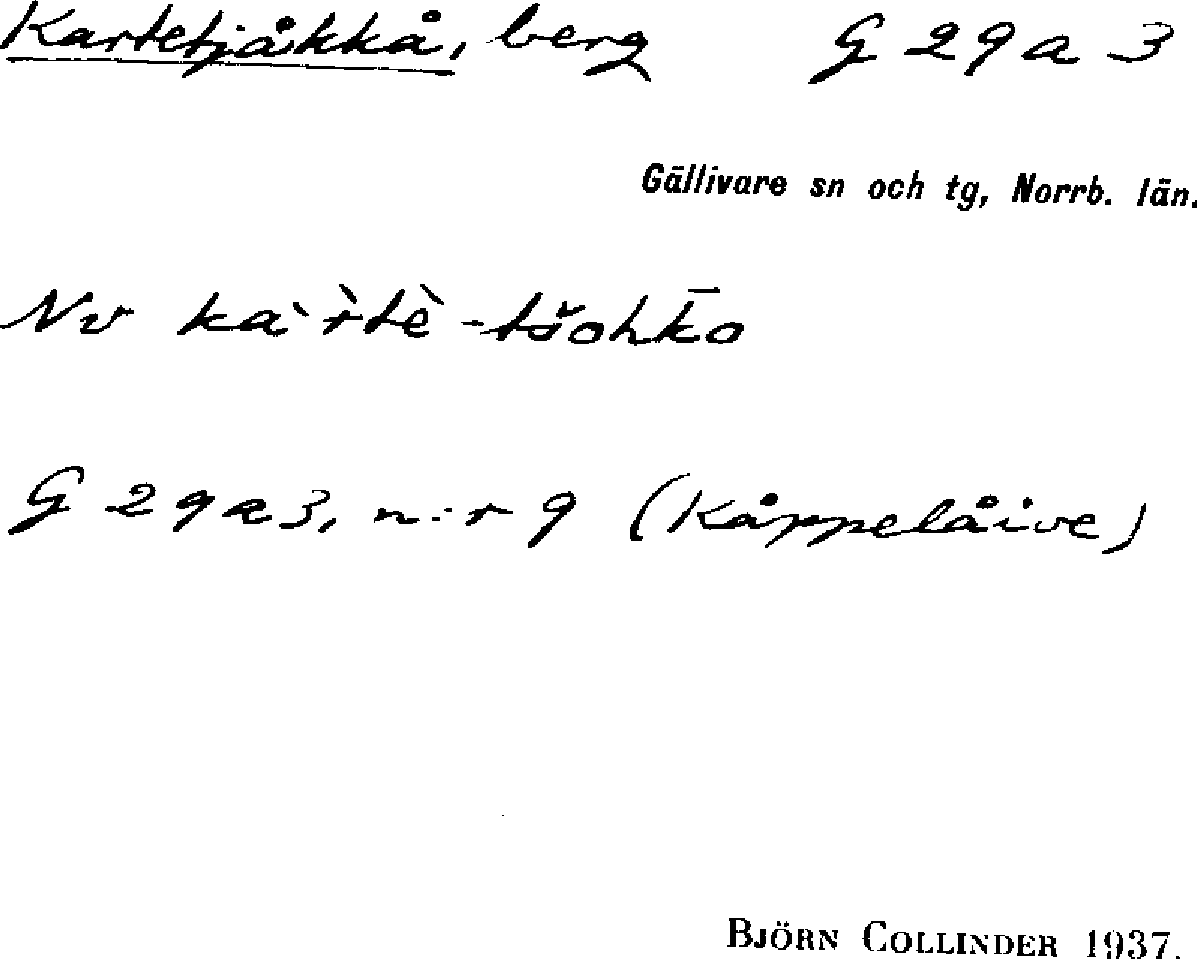 Kartetjåkkå, berg G 29 a 3
Gällivare sn och tg, Norrb. län.
Nv kàr̀tè-tšohk̄o
G 29 a 3, n:r 9 (Kåppelåive)
BJÖRN COLLINDER 1937.